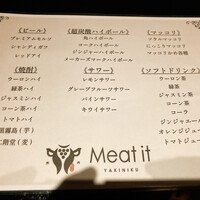 《ビール》
プレミアムモルツ
シャンディガフ
レッドアイ
《焼酎》
ウーロンハイ
緑茶ハイ
ジャスミンハイ
コーン茶ハイ
トマトハイ
黒霧島(芋)
二階堂(麦)
《超炭酸ハイボール》
角ハイボール
コークハイボール
ジンジャーハイボール
メーカーズマークハイボール
《サワー》
レモンサワー
グレープフルーツサワー
パインサワー
キウイサワー
《マッコリ》
《ソフトドリンク》
ウーロン茶
緑茶
ジャスミン茶
コーン茶
コーラ
ジンジャエール
オレンジジュース
トマトジュース
Meat it
YAKINIKU